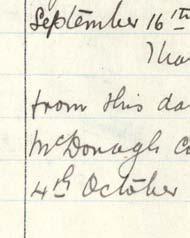 September 16th
from this da
McDonagh Co
4th October